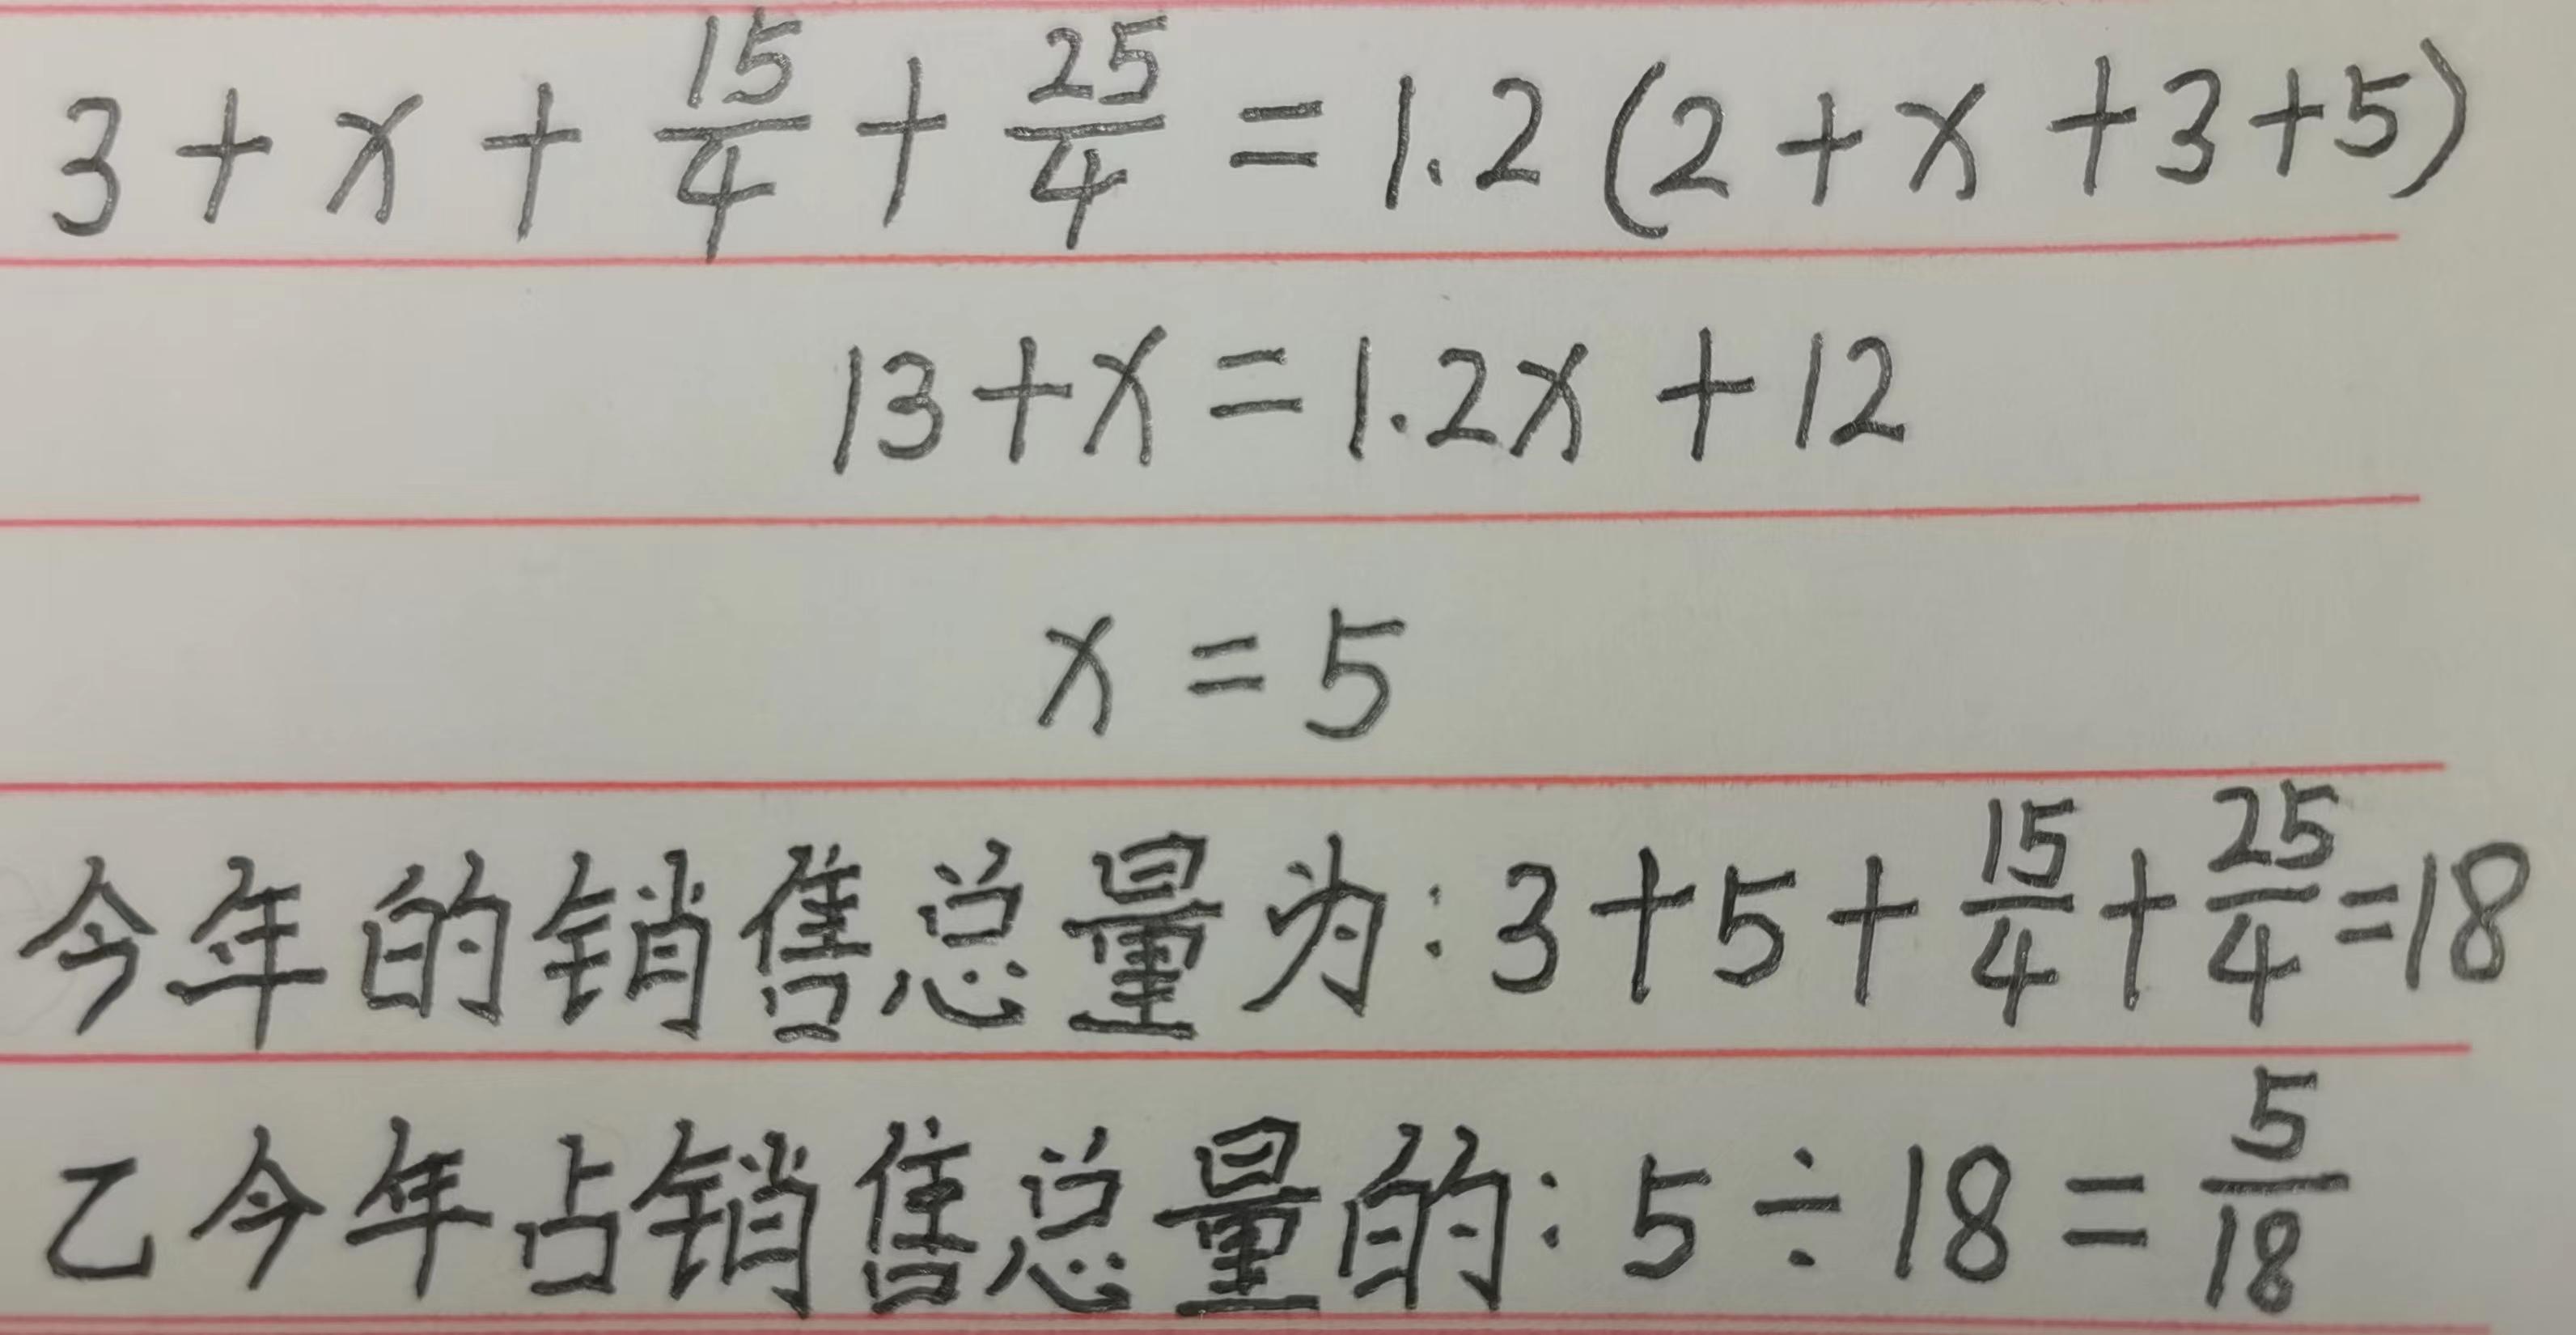 3 + x + 15/4 + 25/4 = 1.2 (2 + x + 3 + 5)
13 + x = 1.2x + 12
x = 5
今年的销售总量为: 3 + 5 + 15/4 + 25/4 = 18
乙今年占销售总量的: 5 ÷ 18 = 5/18